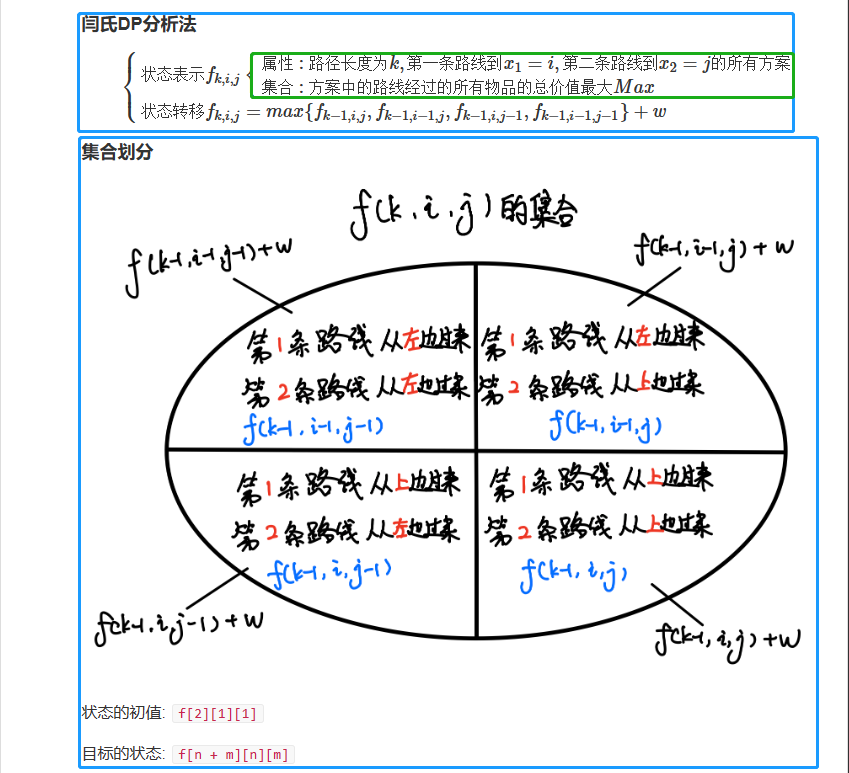 闫氏DP分析法
属性：路径长度为k,第一条路线到x₁ = i,第二条路线到x₂ = j的所有方案
状态表示f_{k,i,j}
集合：方案中的路线经过的所有物品的总价值最大Max
状态转移f_{k,i,j} = max{f_{k−1,i,j}, f_{k−1,i−1,j}, f_{k−1,i,j−1}, f_{k−1,i−1,j−1}} + w
集合划分
f(k,i,j)的集合
f(k-1,i-1,j-1)+w
f(k-1,i-1,j)+w
第1条路线从左边过来
第2条路线从左边过来
f(k-1,i-1,j-1)
第1条路线从左边过来
第2条路线从上边过来
f(k-1,i-1,j)
第1条路线从上边过来
第2条路线从左边过来
f(k-1,i,j-1)
第1条路线从上边过来
第2条路线从上边过来
f(k-1,i,j)
f(k-1,i,j-1)+w
f(k-1,i,j)+w
状态的初值: f[2][1][1]
目标的状态: f[n + m][n][m]